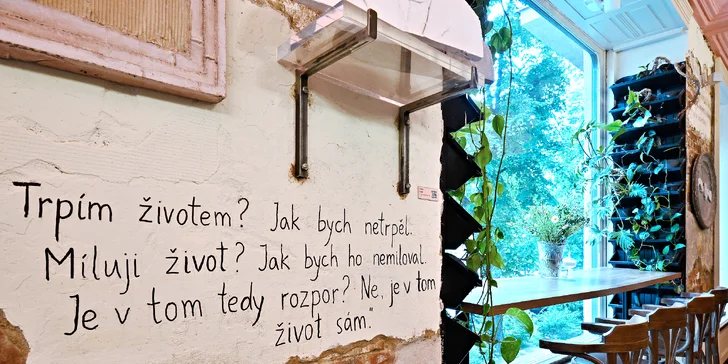 Trpím životem? Jak bych netrpěl.
Miluji život? Jak bych ho nemiloval.
Je v tom tedy rozpor? Ne, je v tom
život sám."